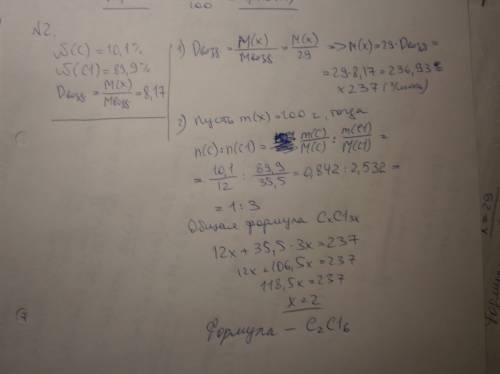 N2.
ω(C) = 10,1%
ω(Cl) = 89,9%
Dвозд = M(x)/Mвозд = 8,17
1) Dвозд = M(x)/Mвозд = M(x)/29 => M(x) = 29·Dвозд =
= 29·8,17 = 236,93 ≈
≈ 237 (г/моль)
2) Пусть m(x) = 100 г, тогда
n(C):n(Cl) = m(C)/M(C) : m(Cl)/M(Cl) =
= 10,1/12 : 89,9/35,5 = 0,842 : 2,532 =
= 1 : 3
Общая формула CxCl3x
12x + 35,5·3x = 237
12x + 106,5x = 237
118,5x = 237
x = 2
Формула – C2Cl6
100
x = 29